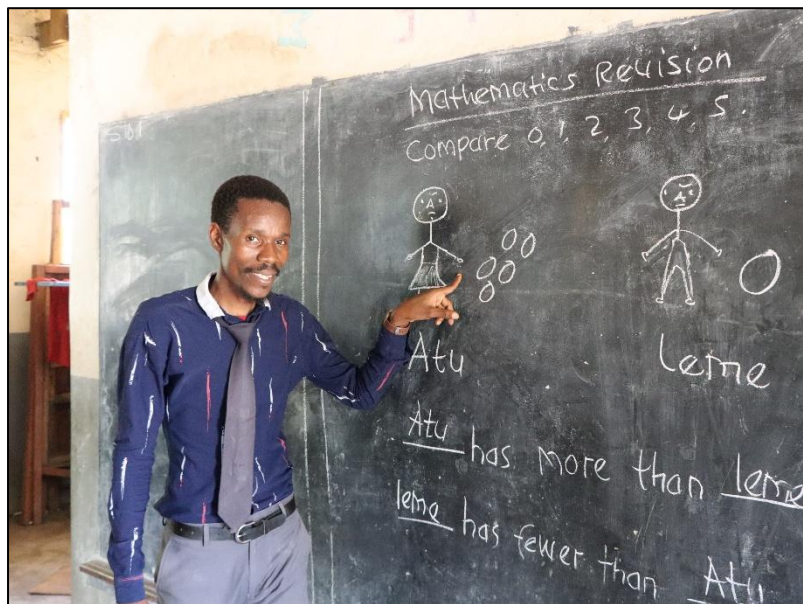 Mathematics Revision
Compare 0, 1, 2, 3, 4, 5.
Atu
Leme
Atu has more than leme
leme has fewer than Atu